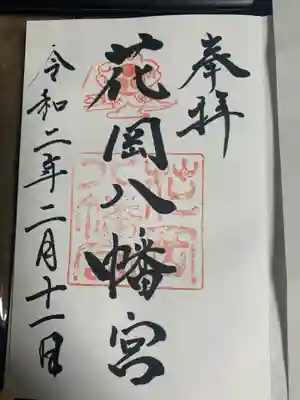 奉拝
花岡八幡宮
令和二年二月十一日